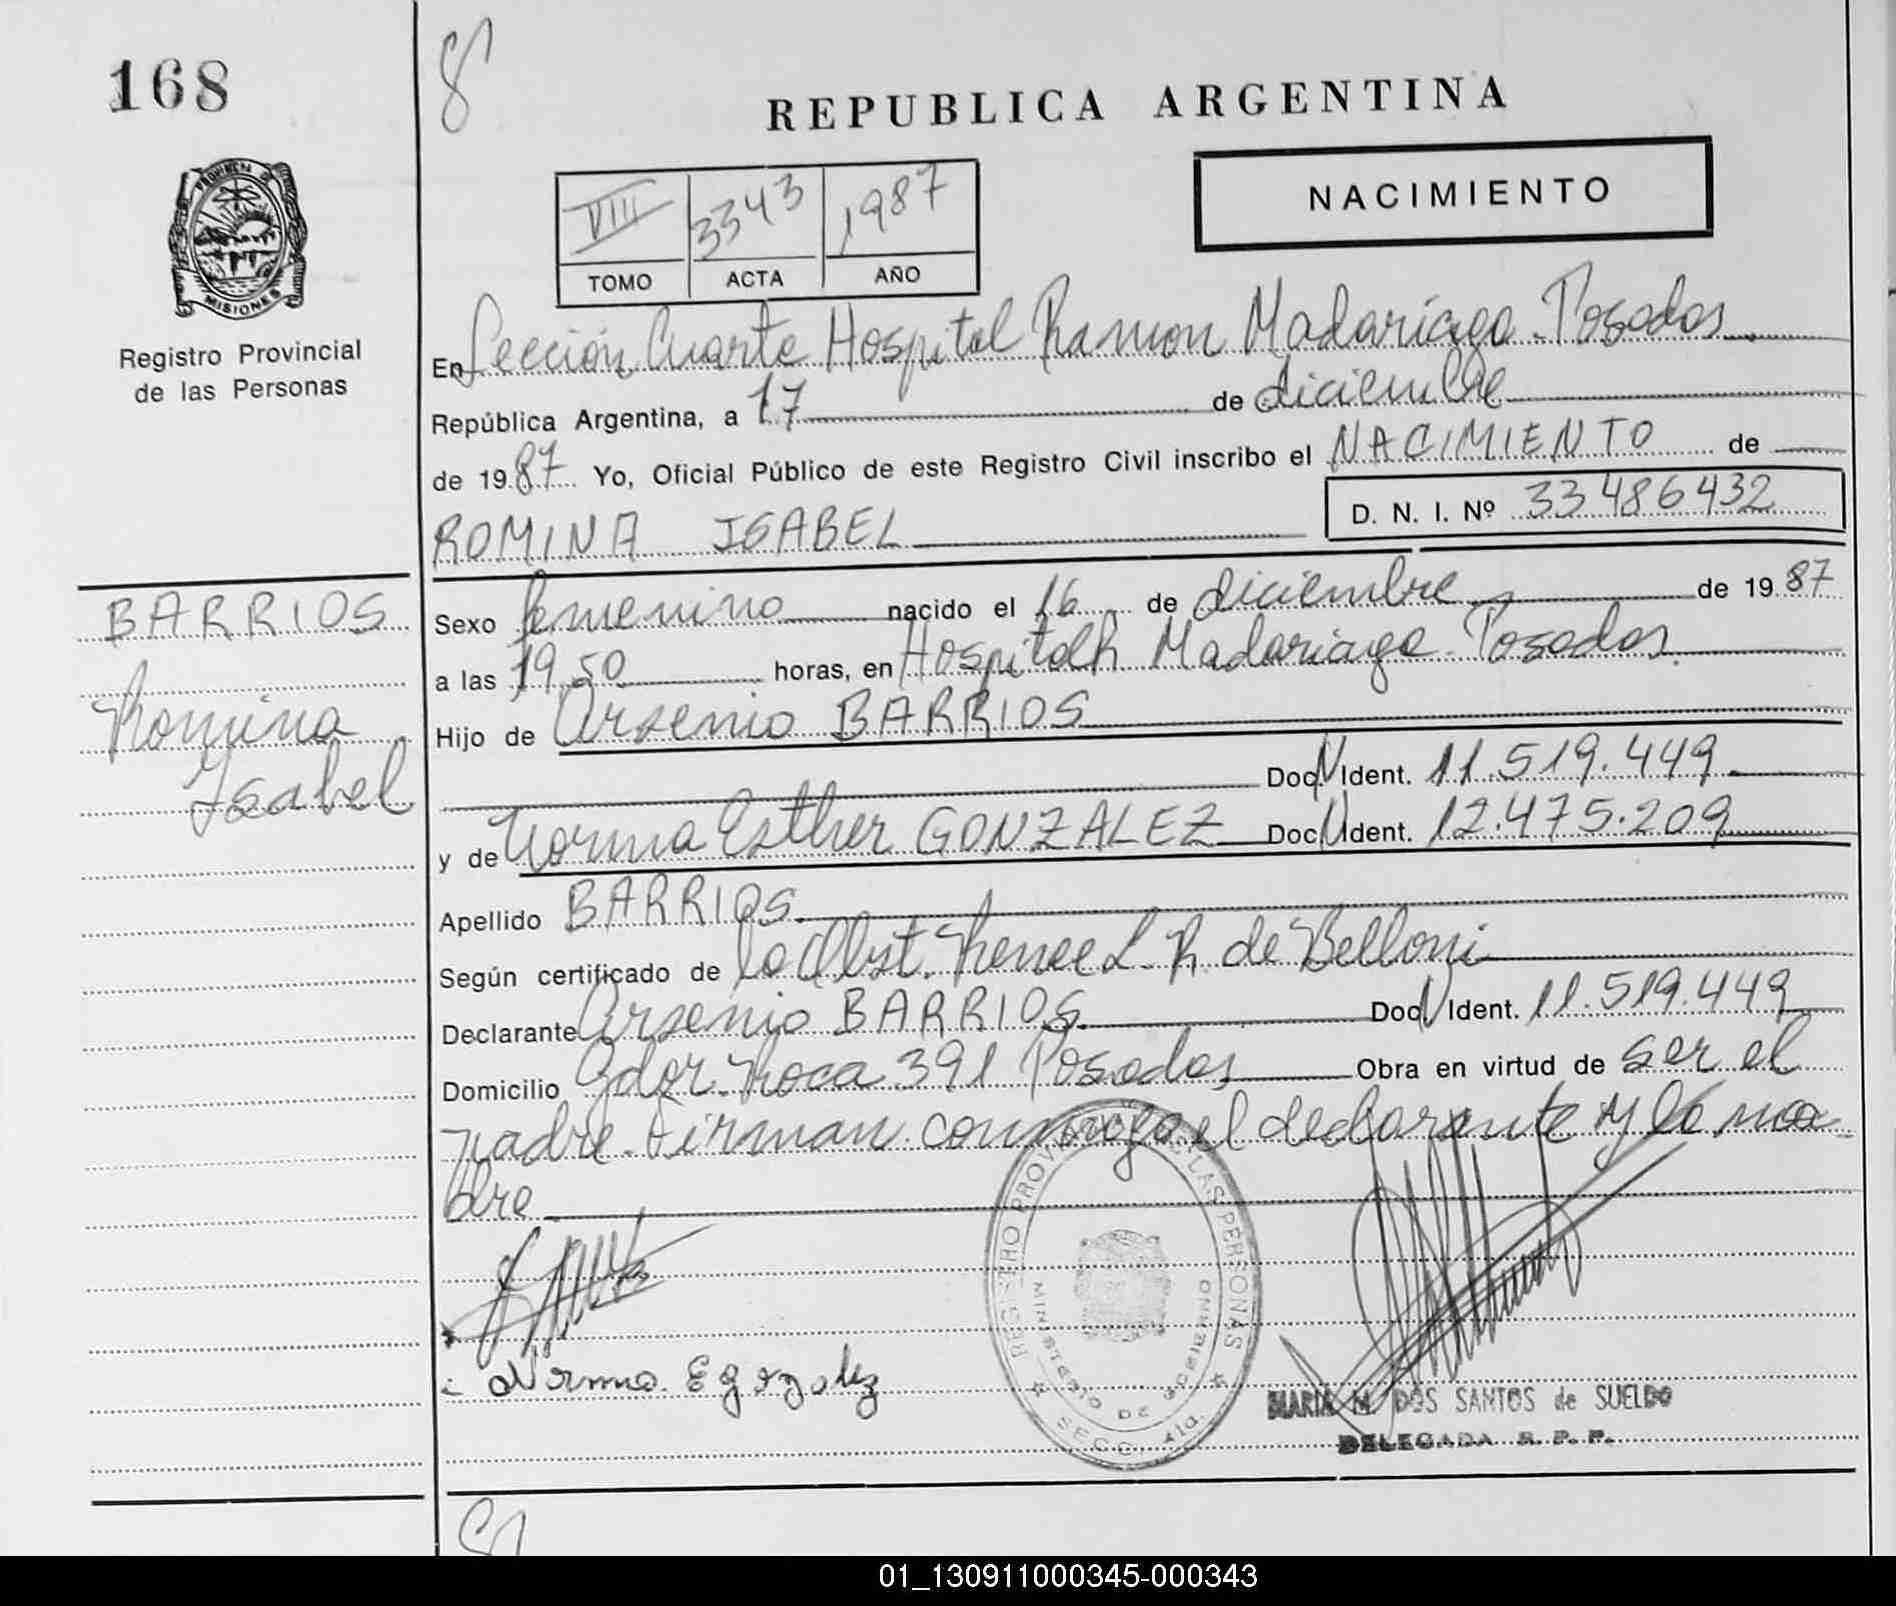 168
REPUBLICA ARGENTINA
NACIMIENTO
VIII 3343 1987
TOMO ACTA AÑO
PROVINCIA DE
MISIONES
Registro Provincial
de las Personas
En Sección Cuarta Hospital Ramon Madariaga - Posadas
República Argentina, a 17 de diciembre
de 1987 Yo, Oficial Público de este Registro Civil inscribo el NACIMIENTO de
D. N. I. Nº 33486432
ROMINA ISABEL
BARRIOS
Romina
Isabel
Sexo femenino nacido el 16 de diciembre de 1987
a las 19,50 horas, en Hospital R Madariaga - Posadas
Hijo de Arsenio BARRIOS
Doc. N Ident. 11.519.449
y de Norma Esther GONZALEZ Doc. N Ident. 12.475.209
Apellido BARRIOS
Según certificado de la Obst. Renee L. R. de Belloni
Declarante Arsenio BARRIOS Doc. N Ident. 11.519.449
Domicilio Gdor. Roca 391 Posadas Obra en virtud de ser el
padre. Firman conmigo el declarante y la ma-
dre
REGISTRO PROVINCIAL DE LAS PERSONAS
MINISTERIO DE GOBIERNO
SECC. 4ta.
Norma E gonzalez
MARIA M. DOS SANTOS de SUELDO
DELEGADA R. P. P.
01_130911000345-000343